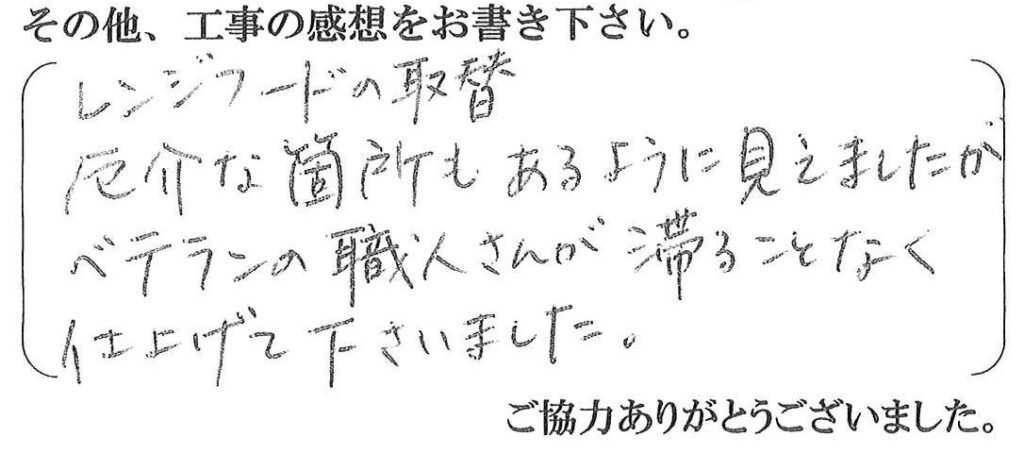 その他、工事の感想をお書き下さい。
レンジフードの取替
厄介な箇所もあるように見えましたが
ベテランの職人さんが滞ることなく
仕上げて下さいました。
ご協力ありがとうございました。